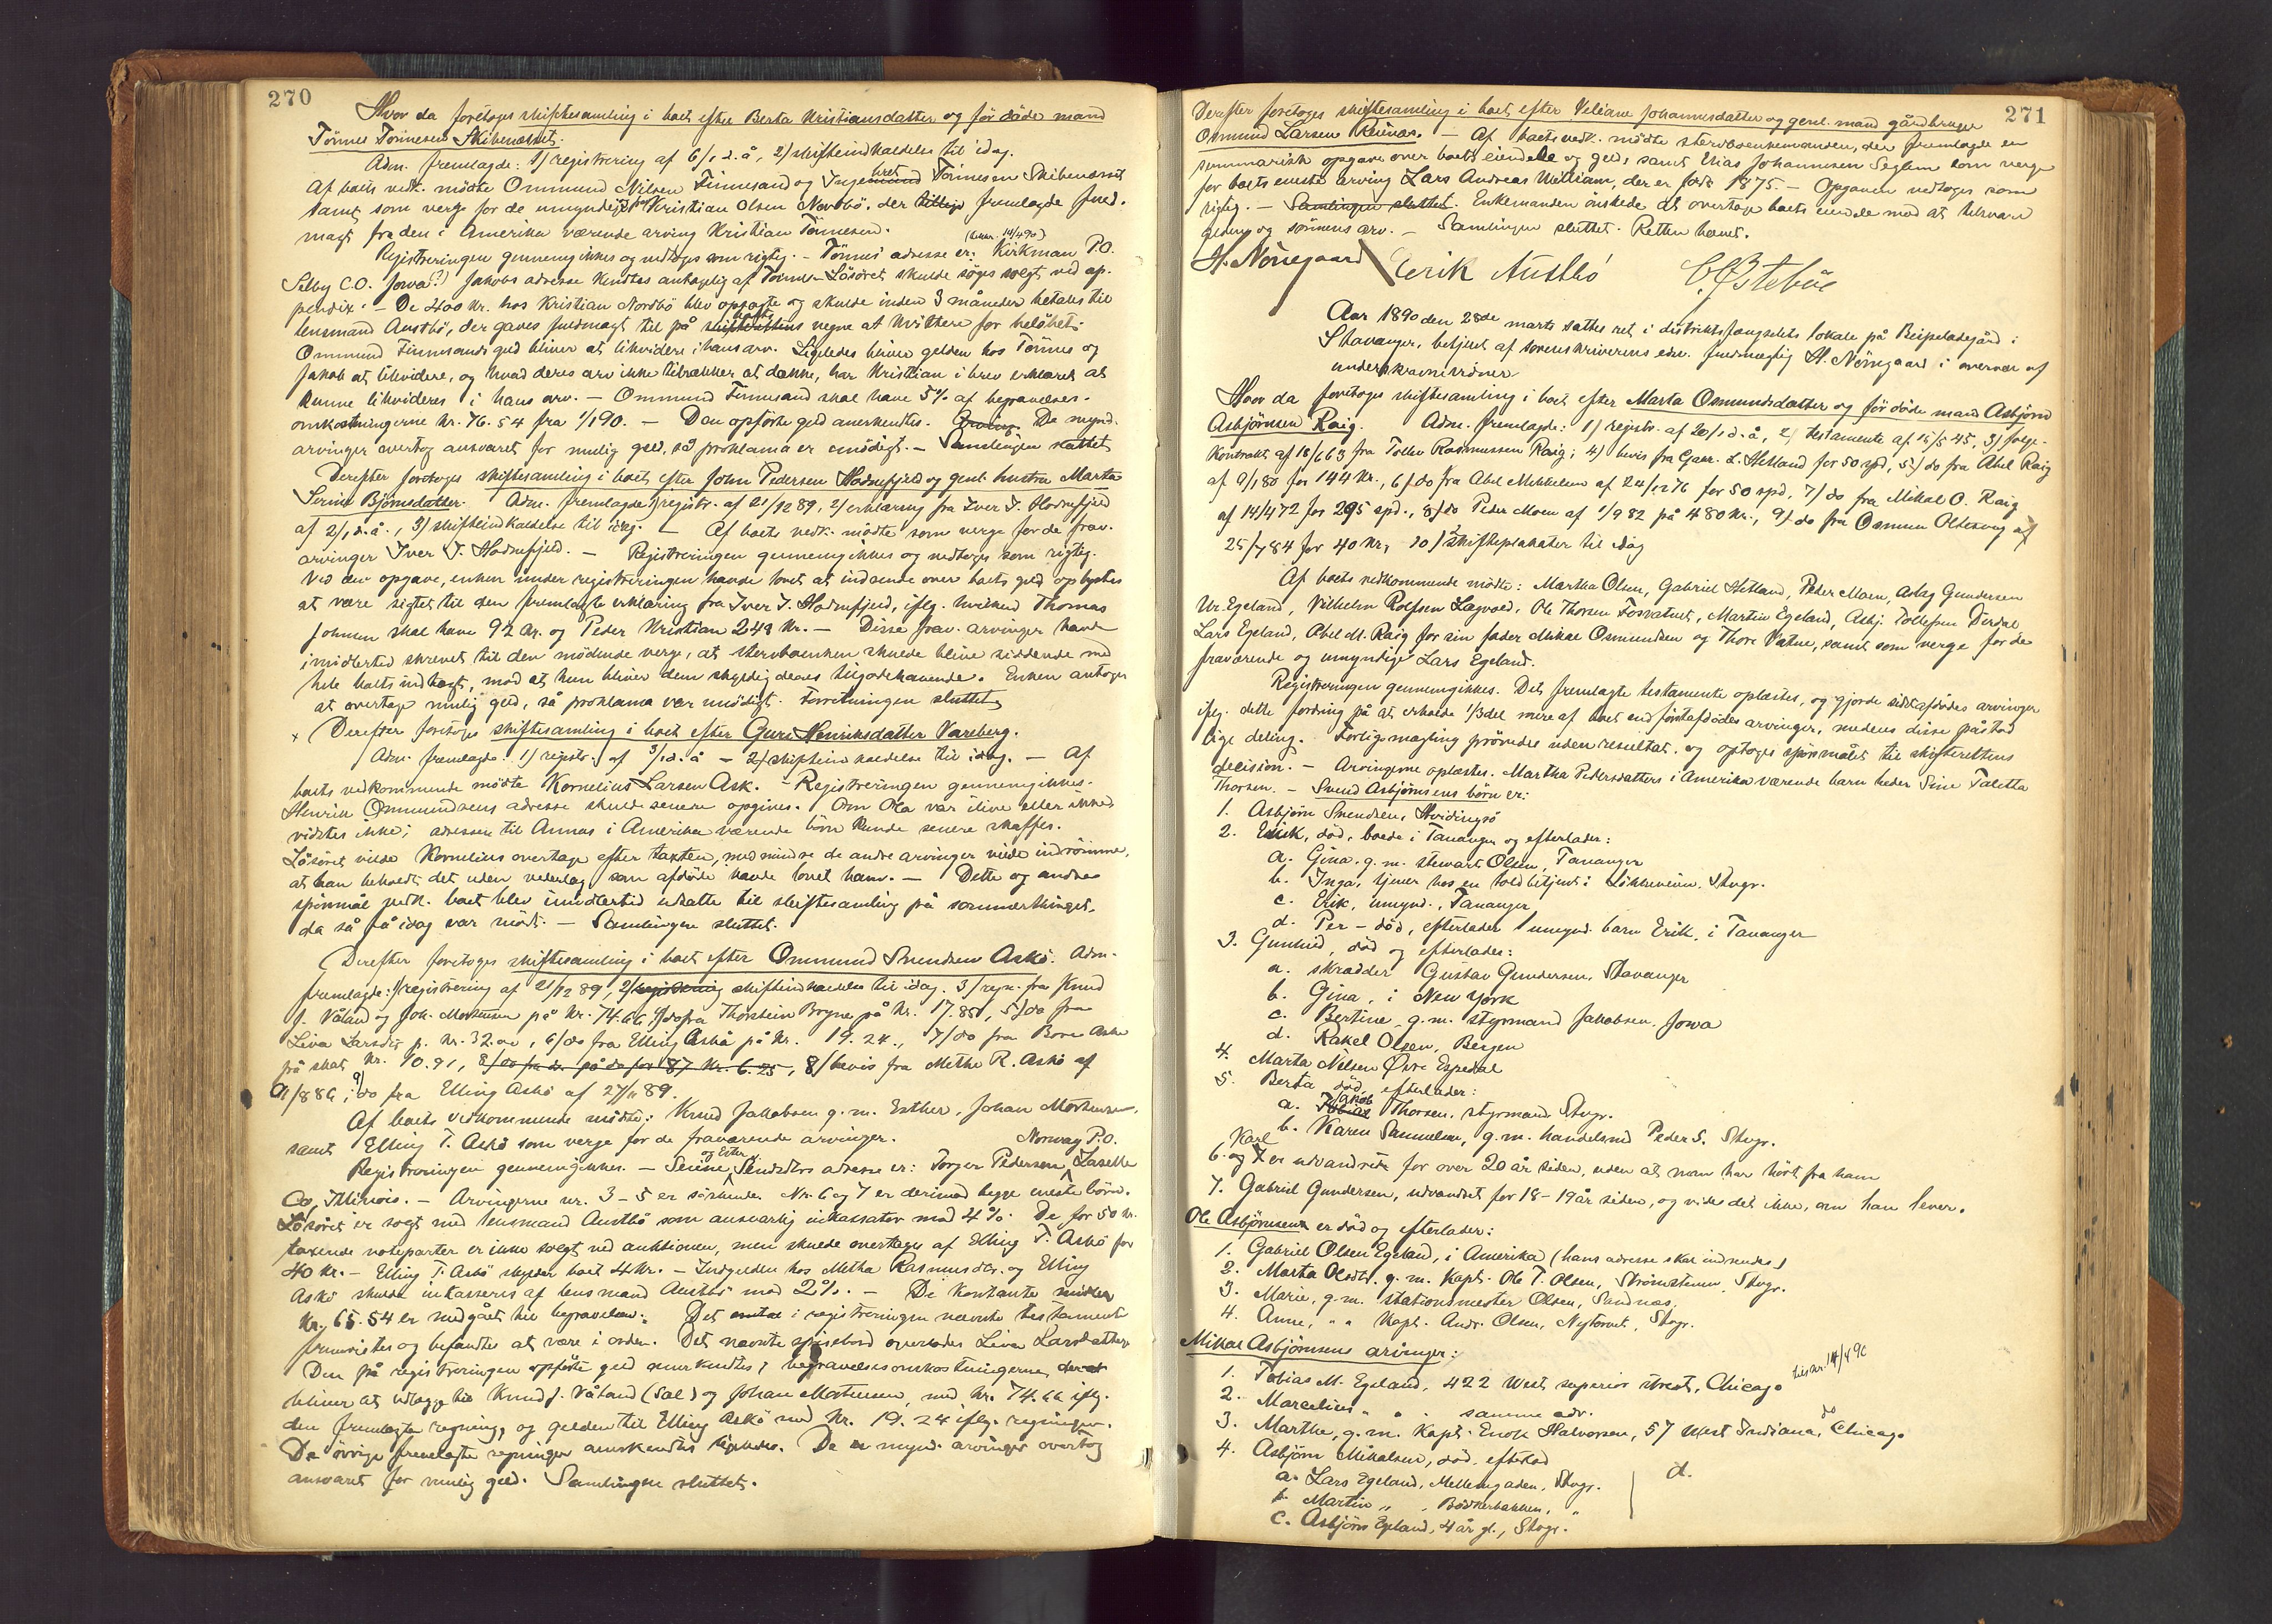 270
Hvor da foretoges skiftesamling i boet efter Berta Kristiansdatter og før døde mand
Tönnes Tönnesen Skibenæsset.
Adm. fremlagde: 1) registrering af 6/1 d. å, 2) skifteindkaldelse til idag.
Af boets vedk. mødte Ommund Nilsen Finnesand og Ingebret Tönnesen Skibenæsset
samt som verge for de umyndige Kristian Olsen Nordbö, der tillige fremlagde fuld-
magt fra den i Amerika værende arving Kristian Tönnesen.
Registreringen gennemgikkes og vedtoges som rigtig. – Tönnes' adresse er: Kirkman P.O.
Selby C.O. Jowa(?) Jakobs adresse kendtes antagelig af Tönnes. Lösöret skulde söges solgt ved ap-
pendix. – De 400 kr. hos Kristian Nordbö blev opsagte og skulde inden 3 måneder betales til
lensmand Austbö, der gaves fuldmagt til på boets vegne at kvittere for belöbet.
Ommund Finnesands gæld bliver at likvidere i hans arv. Ligeledes bliver gælden hos Tönnes og
Jakob at likvidere, og hvad deres arv ikke tilrækker at dække, har Kristian i brev erklæret at
kunne likvideres i hans arv. – Ommund Finnesand skal have 5% af begravelses-
omkostningerne kr. 76.54 fra 1/1 90. – Den opförte gæld anerkendtes. De mynd.
arvinger overtog ansvaret for mulig gæld, så proklama er unödigt. – Samlingen sluttet
Derefter foretoges skiftesamling i boet efter John Pedersen Hodnefjeld og genl. hustru Marta
Serine Björnsdatter. Adm. fremlagde 1) registr. af 21/12 89, 2) erklæring fra Iver J. Hodnefjeld
af 2/1 d. å., 3) skifteindkaldelse til idag. – Af boets vedk. mødte som verge for de frav.
arvinger Iver J. Hodnefjeld. – Registreringen gennemgikkes og vedtoges som rigtig.
Ved den opgave, enken under registreringen havde lovet at indsende over boets gæld oplystes
at være sigtet til den fremlagte erklæring fra Iver J. Hodnefjeld, iflg. hvilken Thomas
Johnsen skal have 92 kr. og Peder Kristian 248 kr. – Disse frav. arvinger havde
imidlertid skrevet til den mødende verge, at stervboenken skulde blive siddende med
hele boets indtægt, mod at hun bliver dem skyldig deres tilgodehavende. Enken antoges
at overtage mulig gæld, så proklama var unödigt. Forretningen sluttet
Derefter foretoges skiftesamling i boet efter Guri Henriksdatter Vareberg.
Adm. fremlagde: 1) registr. af 3/1 d. å – 2) skifteindkaldelse til idag. – Af
boets vedkommende mødte Kornelius Larsen Ask. – Registreringen gennemgikkes.
Henrik Ommundsens adresse skulde senere opgives. Om Ola var ilive eller ikke
vidstes ikke; adressen til Annas i Amerika værende börn kunde senere skaffes.
Lösöret vilde Kornelius overtage efter taxten, medmindre de andre arvinger vilde indrömme,
at han beholdt det uden vederlag som afdöde havde lovet ham. – Dette og andre
spörsmål vedk. boet blev imidlertid udsatte til skiftesamling på sommerthinget,
da så få idag var mödt. – Samlingen sluttet.
Derefter foretoges skiftesamling i boet efter Ommund Svendsen Askö. Adm.
fremlagde: 1) registrering af 21/12 89, 2) skifteindkaldelse til idag. 3) regn. fra Knud
J. Våland og Joh. Mortensen på kr. 74.66 4) do fra Thorstein Bryne på kr. 17.88, 5) do fra
Liva Larsdtr p. kr. 32.00, 6) do fra Elling Askö på kr. 19.24, 7) do fra Bore Aske
på skat kr. 10.91, 8) do fra do. på do for 87 kr. 6.25, 8) bevis fra Methe R. Askö af
9/8 86, 9) do fra Elling Askö af 27/11 89.
Af boets vedkommende mødte: Knud Jakobsen g. m. Esther, Johan Mortensen,
samt Elling T. Askö som verge for de fraværende arvinger.
Norway P.O.
Registreringen gennemgikkes. – Serine og Ester Svendsdtrs adresse er: Torger Pedersen, Laselle
Co, Illinois. – Arvingerne nr. 3–5 er söskende. Nr. 6 og 7 er derimod begge eneste börn.
Lösöret er solgt med lensmand Austbö som ansvarlig inkassator mod 4%. De for 50 kr.
taxerede noteparter er ikke solgt ved auktionen, men skulde overtages af Elling T. Askö for
40 kr. – Elling T. Askö skylder boet 4 kr. – Indgælden hos Metha Rasmusdtr. og Elling
Askö skulde inkasseres af lensmand Austbö mod 2%. – De kontante midler
kr. 65.54 er medgået til begravelsen. Det i registreringen nævnte testamente
fremvistes og befandtes at være i orden. Det nævnte spisebord overlodes Liva Larsdatter
Den på registreringen opförte gæld anerkendtes; begravelsesomkostningerne
bliver at udlægge til Knud J. Våland (Sal) og Johan Mortensen, med kr. 74.66 iflg.
den fremlagte regning, og gælden til Elling Askö med kr. 19.24 iflg. regningen.
De övrige fremlagte regninger anerkendtes ligeledes. De mynd. arvinger overtog
ansvaret for mulig gæld. Samlingen sluttet.
271
Derefter foretoges skiftesamling i boet efter Johannesdatter og genl. mand gårdbruger
Osmund Larsen. – Af boets vedk. mødte stervboenkemanden, der fremlagde en
summarisk opgave over boets eiendele og gæld, samt Elias Johannesen Seglem som verge
for boets eneste arving Lars Andreas William, der er född 1875. – Opgaven vedtoges som
rigtig. – Samlingen sluttet. Enkemanden önskede at overtage boets eiendele mod at tilsvare
gælden og sönnens arv. – Samlingen sluttet. Retten hævet.
H. Nörregaard Eerik Austbö C. Östebö
Aar 1890 den 28de marts sattes ret i distriktsfængselets lokale på Beipeladegård i
Stavanger, betjent af sorenskriverens edsv. fuldmægtig H. Nörregaard i overvær af
underskrevne vidner
Hvor da foretoges skiftesamling i boet efter Marta Osmundsdatter og för döde mand Asbjörn
Asbjörnsen Raig. Adm. fremlagde: 1) registr. af 20/1 d. å, 2) testamente af 16/5 45, 3) fölge-
kontrakt af 18/6 63 fra Tollev Rasmussen Raig; 4) bevis fra Gabr. L. Hetland for 50 spd, 5) do fra Abel Raig
af 9/1 80 for 144 kr., 6) do fra Abel Mikkelsen af 24/12 76 for 50 spd, 7) do fra Mikal O. Raig
af 14/4 72 for 295 spd., 8) do Peder Moen af 1/9 82 på 480 kr., 9) do fra Osmun Oltesvig af
25/7 84 for 40 kr, 10) skifteplakater til idag
Af boets vedkommende mødte: Martha Olsen, Gabriel Hetland, Peder Moen, Aslag Gundersen
Ur. Egeland, Vilhelm Rolfsen Lagvold, Ole Thorsen Fosvatnet, Martin Egeland, Asbj. Tollefsen Dirdal
Lars Egeland, Abel M. Raig for sin fader Mikal Osmundsen og Thore Vatne, samt som verge for de
fraværende og umyndige Lars Egeland.
Registreringen gennemgikkes. Det fremlagte testamente oplæstes, og gjorde sidstafdödes arvinger
iflg. dette fordring på at erholde 1/3 del mere af boet end förstafdödes arvinger, medens disse påstod
lige deling. Forligsmægling prövedes uden resultat, og optoges spörsmålet til skifterettens
decision. – Arvingerne oplæstes. Martha Pedersdatters i Amerika værende barn heder Sine Taletta
Thorsen. – Svend Asbjörnsens börn er:
1. Asbjörn Svendsen, Hvidingsö
2. Erik, död, boede i Tananger og efterlader:
a. Gina, g. m. stewart Olsen, Tananger
b. Inga, tjener hos en toldbetjent i Lökkeveien, Stvgr.
c. Erik, umynd., Tananger
d. Per – död, efterlader 1 umynd. barn Erik, i Tananger
3. Gunhild, död og efterlader:
a. skrædder Gustav Gundersen, Stavanger
b. Gina, i New York
c. Bertine, g. m. styrmand Jakobsen, Jowa
d. Rakel Olsen, Bergen
4. Marta Nilsen Övre Espedal
5. Berta död, efterlader:
a. Jakob Thorsen, styrmand Stvgr.
b. Karen Samuelsen, g. m. handelsmd Peder S. Stvgr.
6. Karl er udvandret for over 20 år siden, uden at man har hört fra ham
7. Gabriel Gundersen, udvandret for 18–19 år siden, og vides det ikke, om han lever.
Ole Asbjörnsen er död og efterlader:
1. Gabriel Olsen Egeland, i Amerika (hans adresse skal indsendes)
2. Marta Olsdtr. g. m. kapt. Ole T. Olsen, Strömstenen, Stvgr.
3. Marie, g. m. stationsmester Olsen, Sandnæs.
4. Anne, " " kapt. Andr. Olsen, Nytorvet, Stvgr.
Mikal Asbjörnsens arvinger:
1. Tobias M. Egeland, 422 West superior street, Chicago
2. Marcelius " " samme adr.
3. Marthe, g. m. kapt. Enok Halvorsen, 57 West Indiana do, Chicago
4. Asbjörn Mikalsen, död, efterlod
a. Lars Egeland, Mellemgaden, Stvgr.
b. Martin " , Bödkerbakken, "
c. Asbjörn Egeland, 4 år gl., Stvgr.
d.